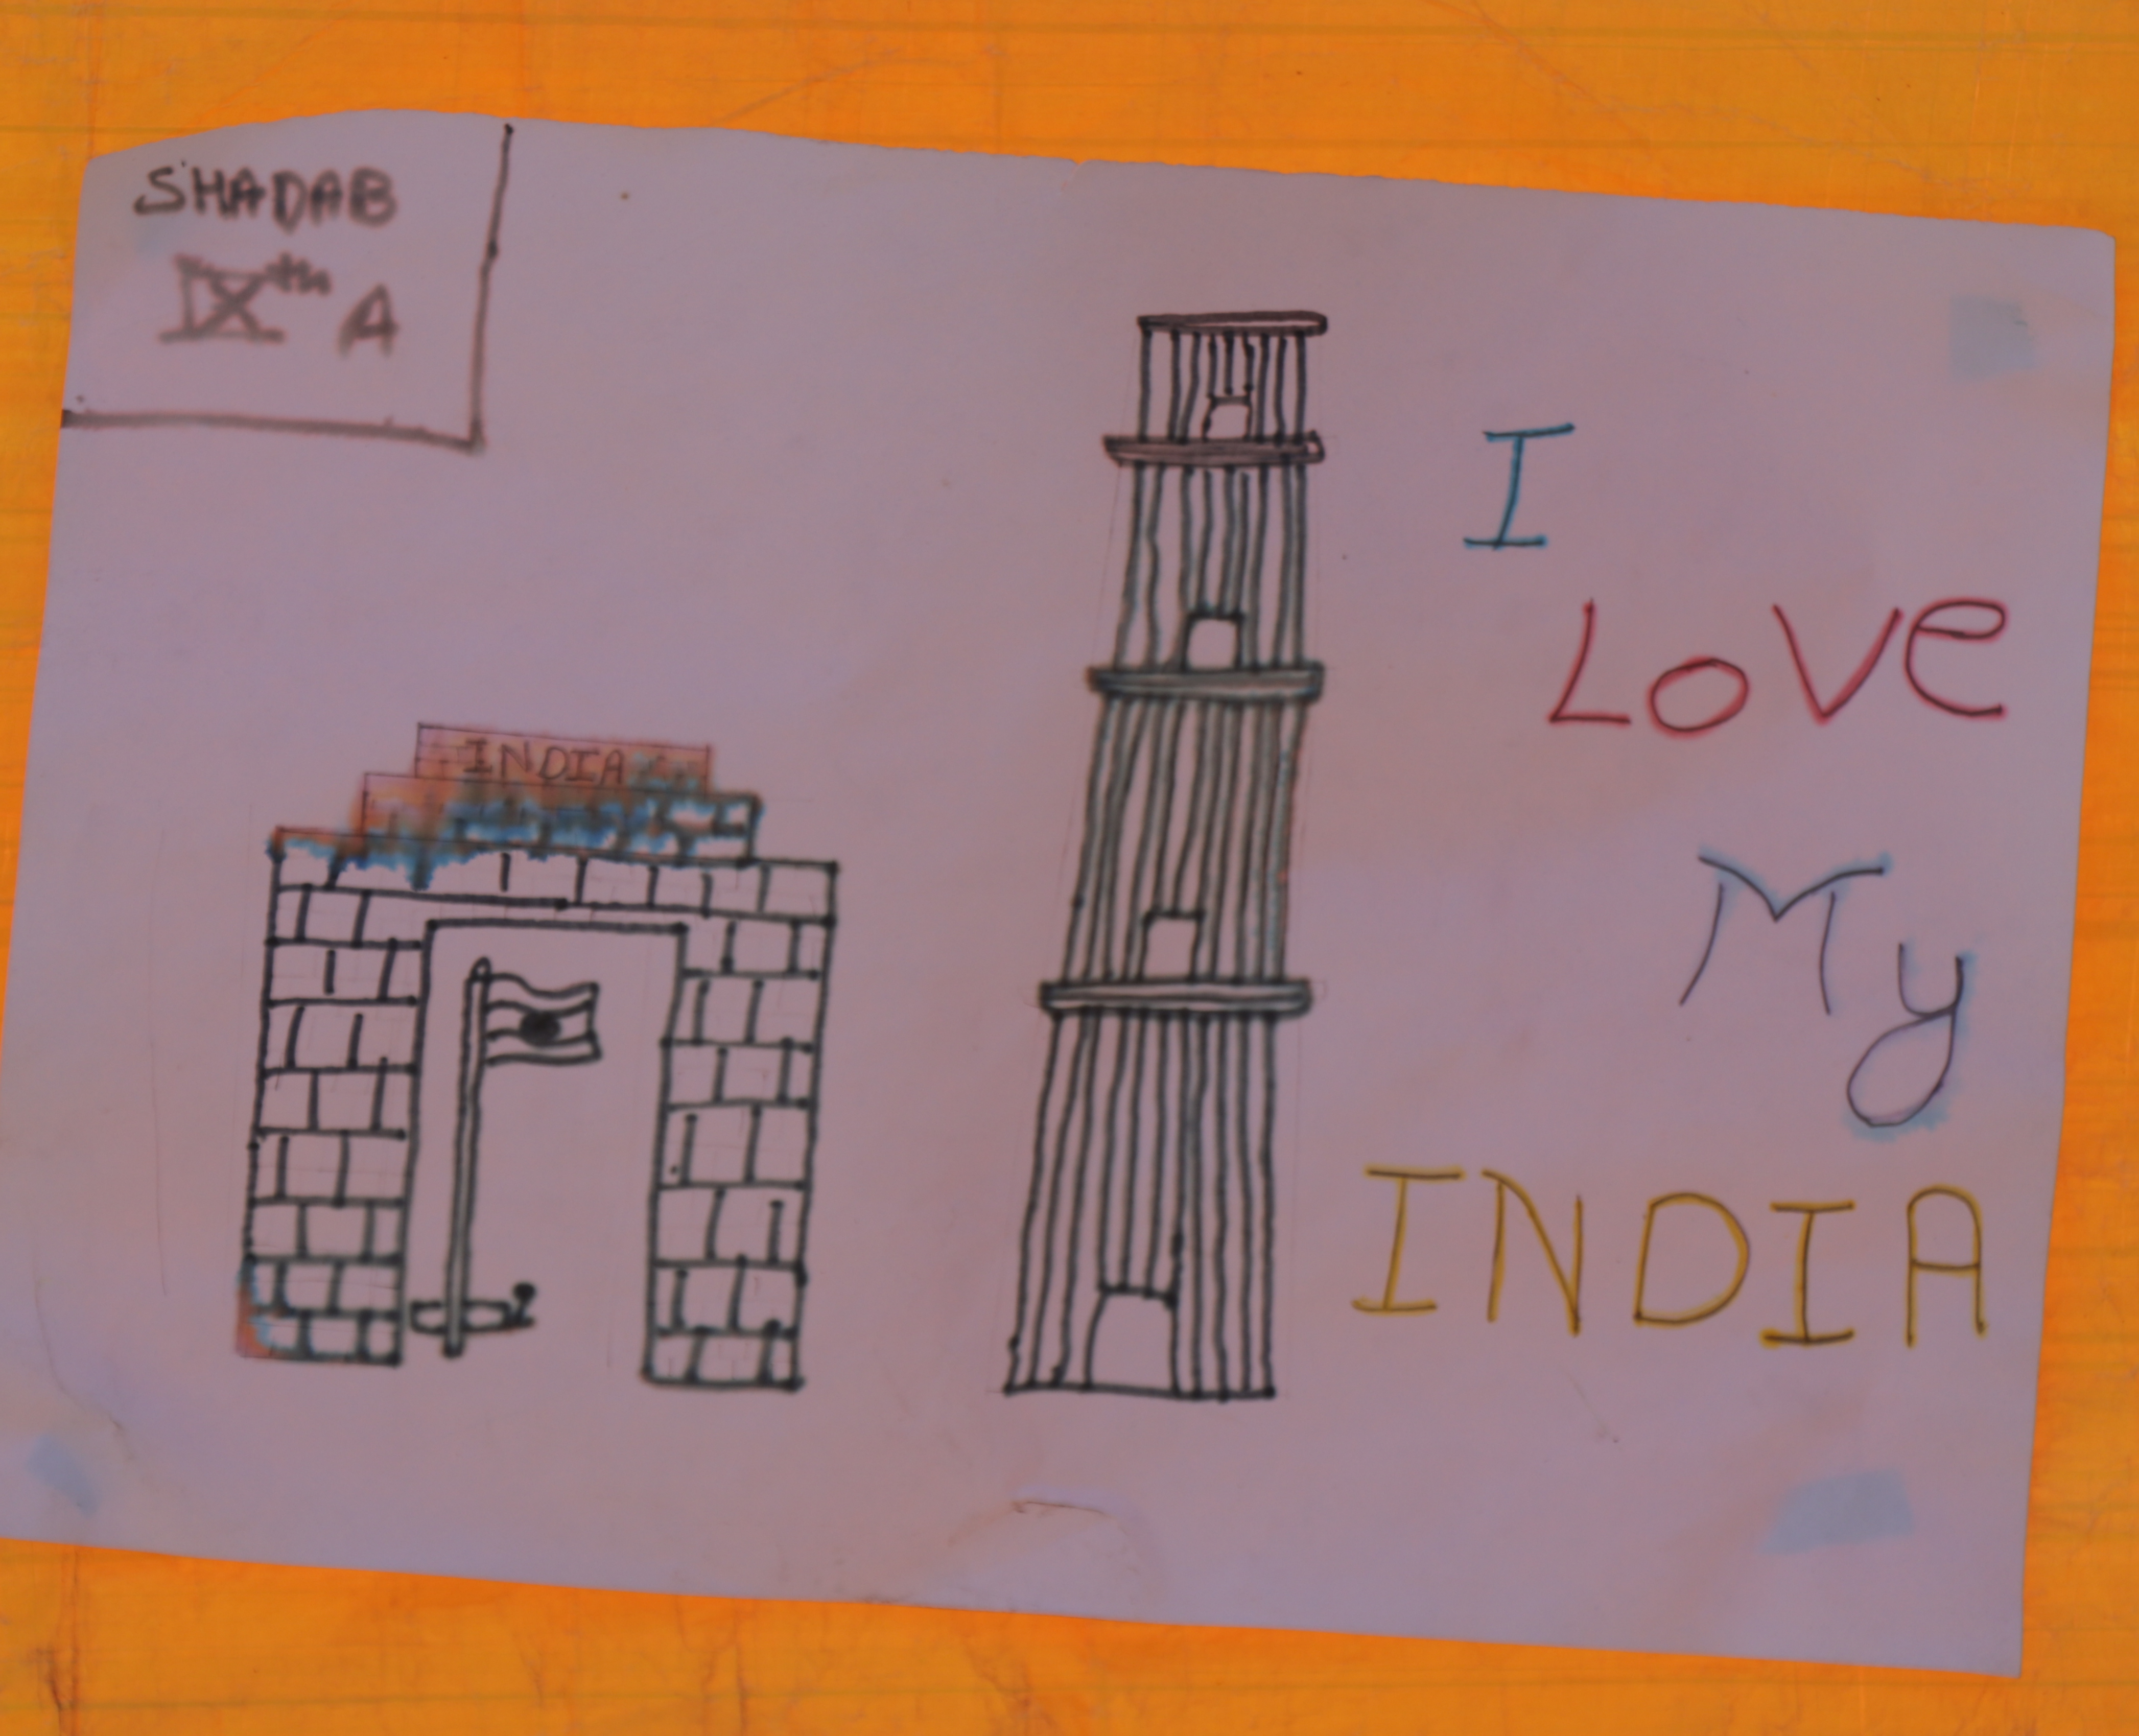 SHADAB
IXth A
INDIA
I
LOVe
My
INDIA